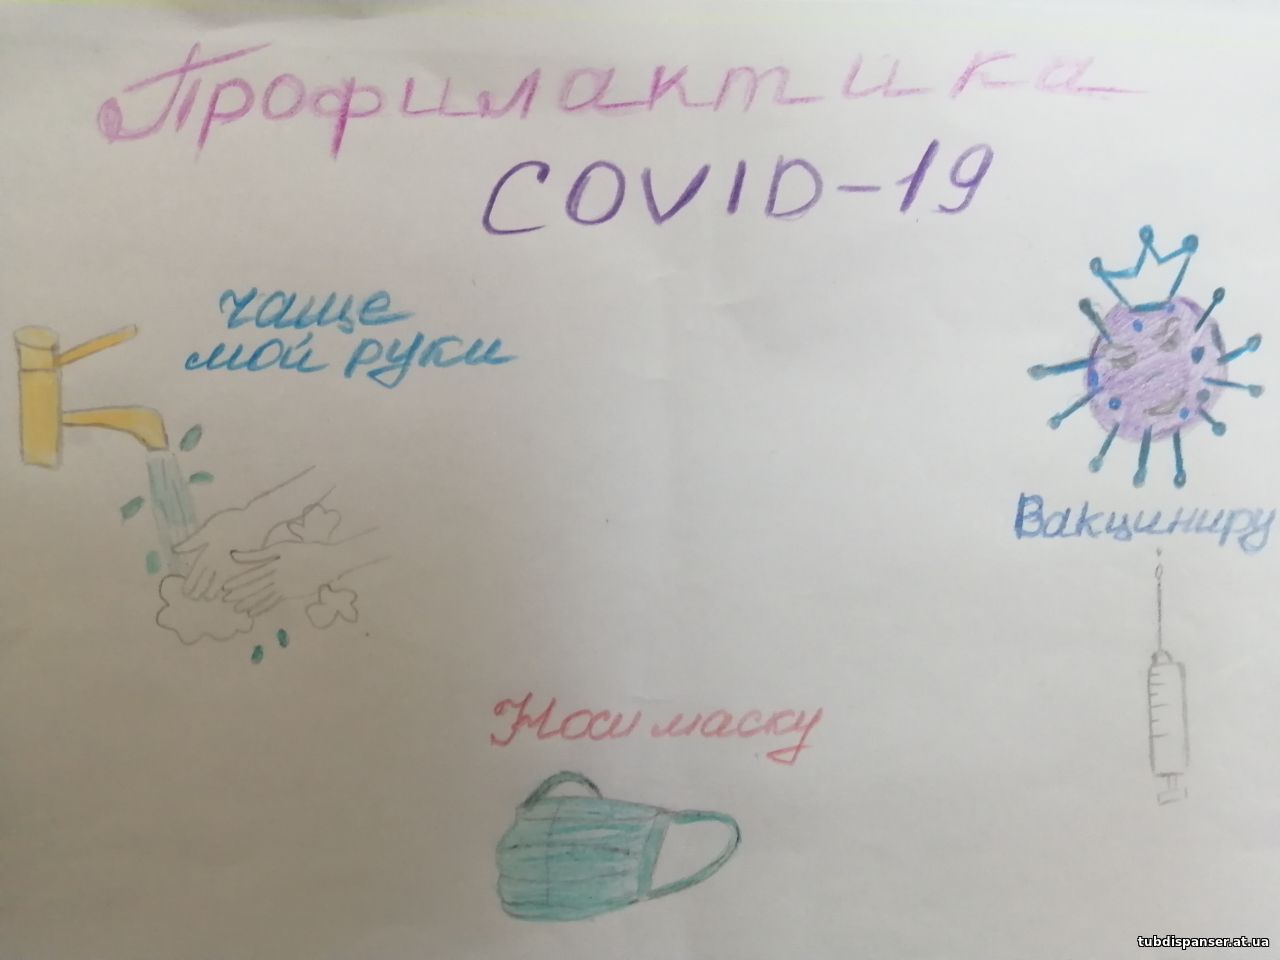 Профилактика
COVID-19
чаще
мой руки
Вакциниру
Носи маску
tubdispanser.at.ua